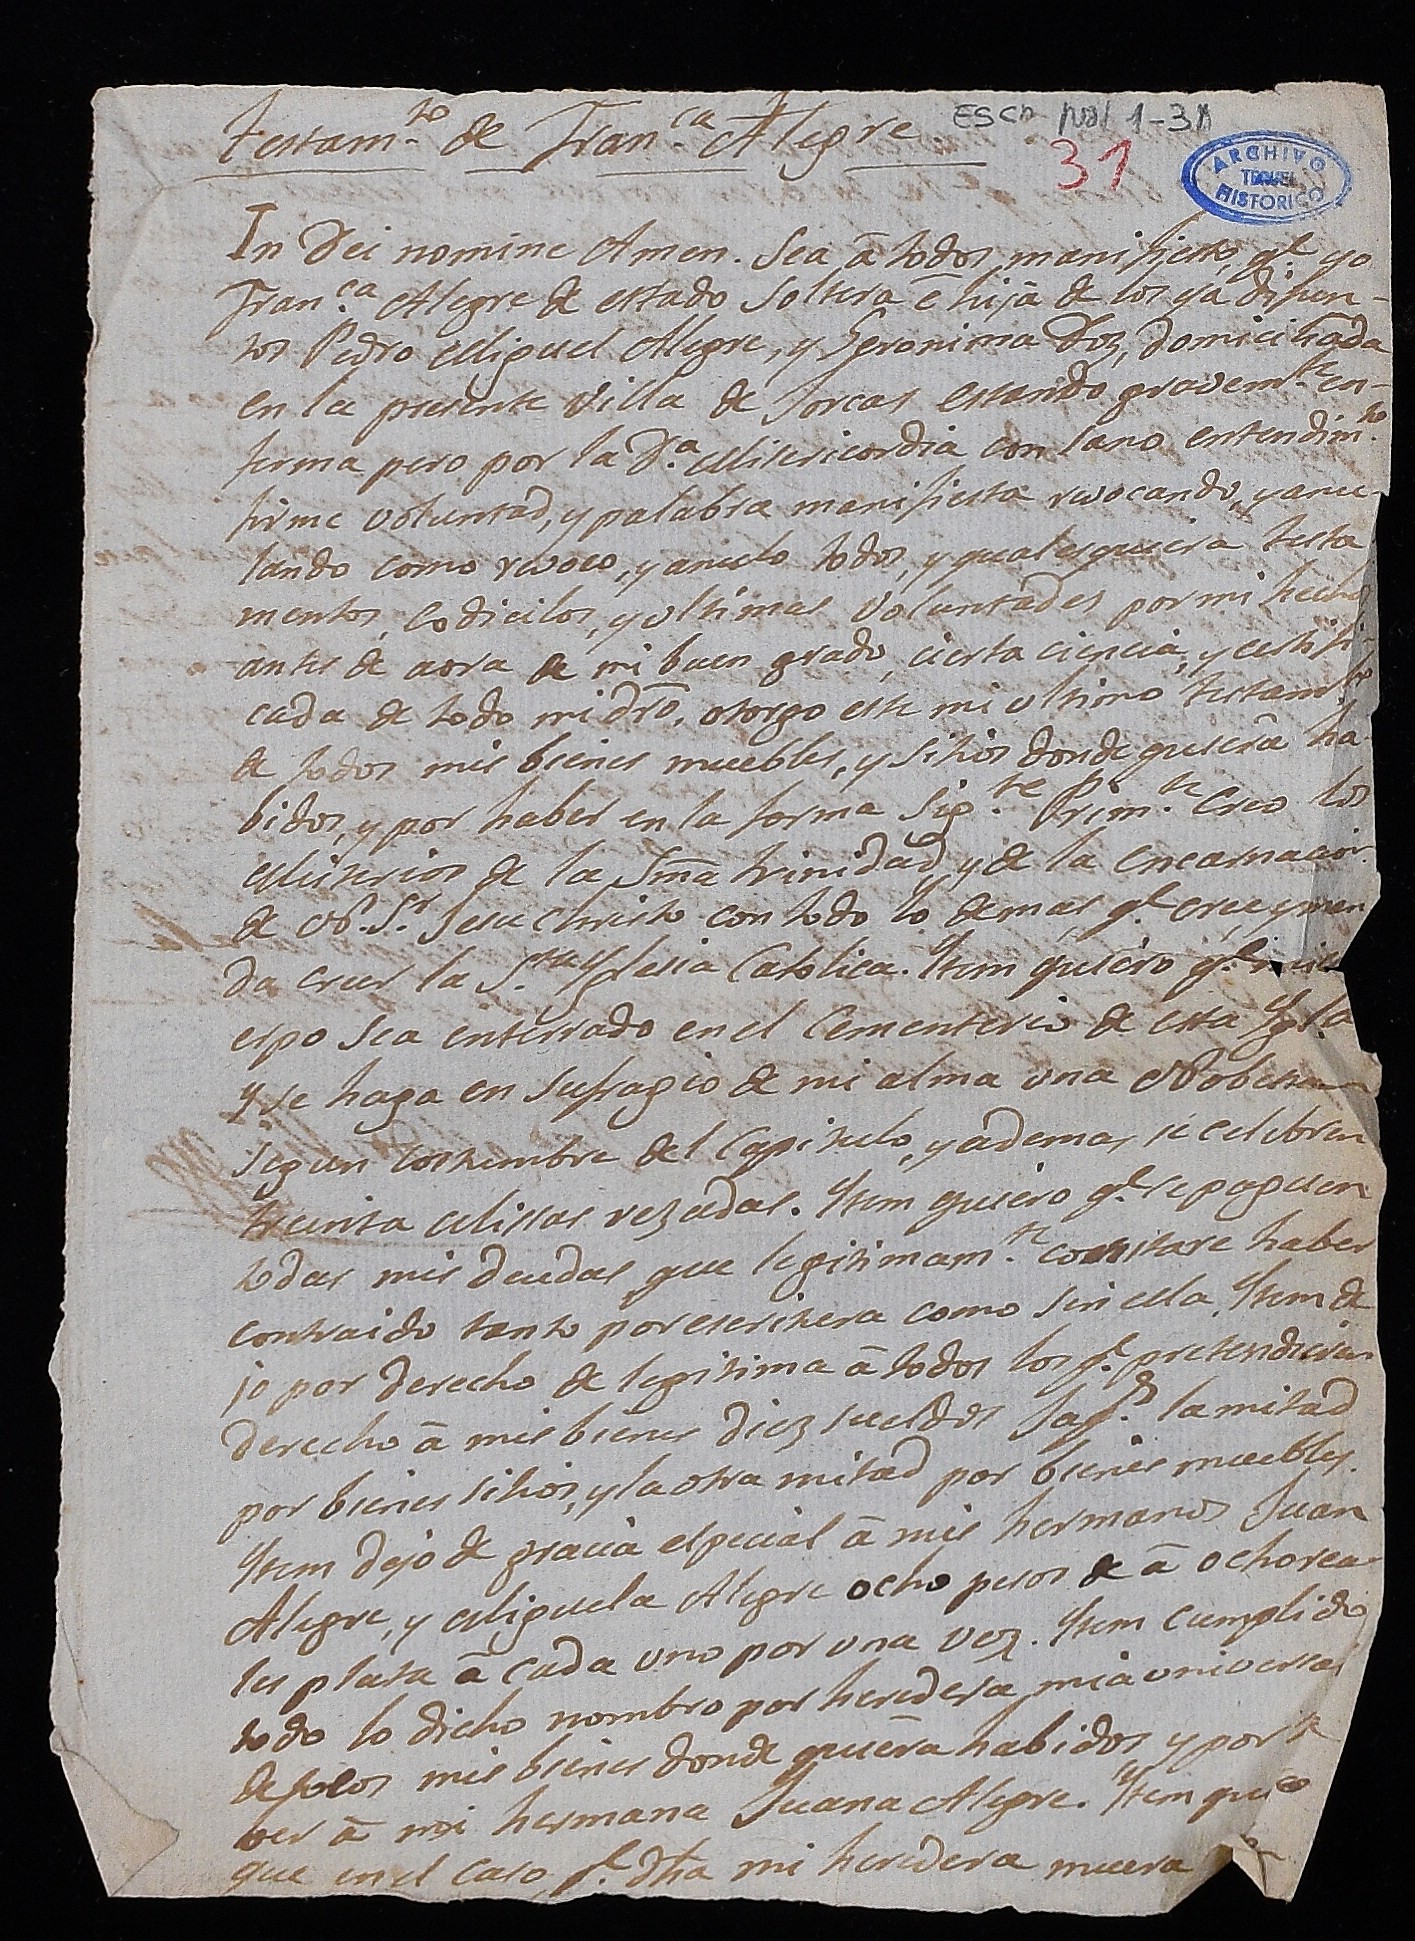 testam.to de Fran.ca Alegre
ESCR 1-31
31
ARCHIVO
TERUEL
HISTORICO
In Dei nomine Amen. Sea â todos manifiesto, q.e yo
Fran.ca Alegre de estado soltera ê hija de los ya difun-
tos Pedro Miguel Alegre, y Geronima Doz, domiciliada
en la presente villa de Jorcas estando gravem.te en-
ferma pero por la D.a Misericordia con sano entendim.to
firme voluntad, y palabra manifiesta revocando, y anu-
lando como revoco, y anulo todos, y qualesquiera testa
mentos, codicilos, y ultimas voluntades por mi hechos
antes de aora de mi buen grado, cierta ciencia, y certifi
cada de todo mi dro, otorgo este mi ultimo testam.to
de todos mis bienes muebles, y sitios donde quiera ha-
bidos, y por haber en la forma sig.te Prim.te Creo los
Misterios de la Sma trinidad, y de la encarnacion
de N. Sr. Jesu Christo con todo lo demas q.e cree, y man
da creer la S.ta Yglesia Catolica. Ytem quiero q.e mi cu
erpo sea enterrado en el Cementerio de esta Ygl.a
y se haga en sufragio de mi alma una Nobena
segun costumbre del Capitulo, y ademas se celebren
treinta Missas rezadas. Ytem quiero q.e se paguen
todas mis deudas, que legitimam.te constare haber
contraido tanto por escritura como sin ella. Ytem de
jo por derecho de legitima â todos los q.e pretendieran
derecho â mis bienes diez sueldos Jaq.s la mitad
por bienes sitios, y la otra mitad por bienes muebles.
Ytem dejo de gracia especial â mis hermanos Juan
Alegre, y Miguela Alegre ocho pesos de â ocho rea-
les plata â cada uno por una vez. Ytem cumplido
todo lo dicho nombro por heredera mia universal
de todos mis bienes donde quiera habidos y por ha
ver â mi hermana Juana Alegre. Ytem quiero
que en el caso, q.e dha mi heredera muera